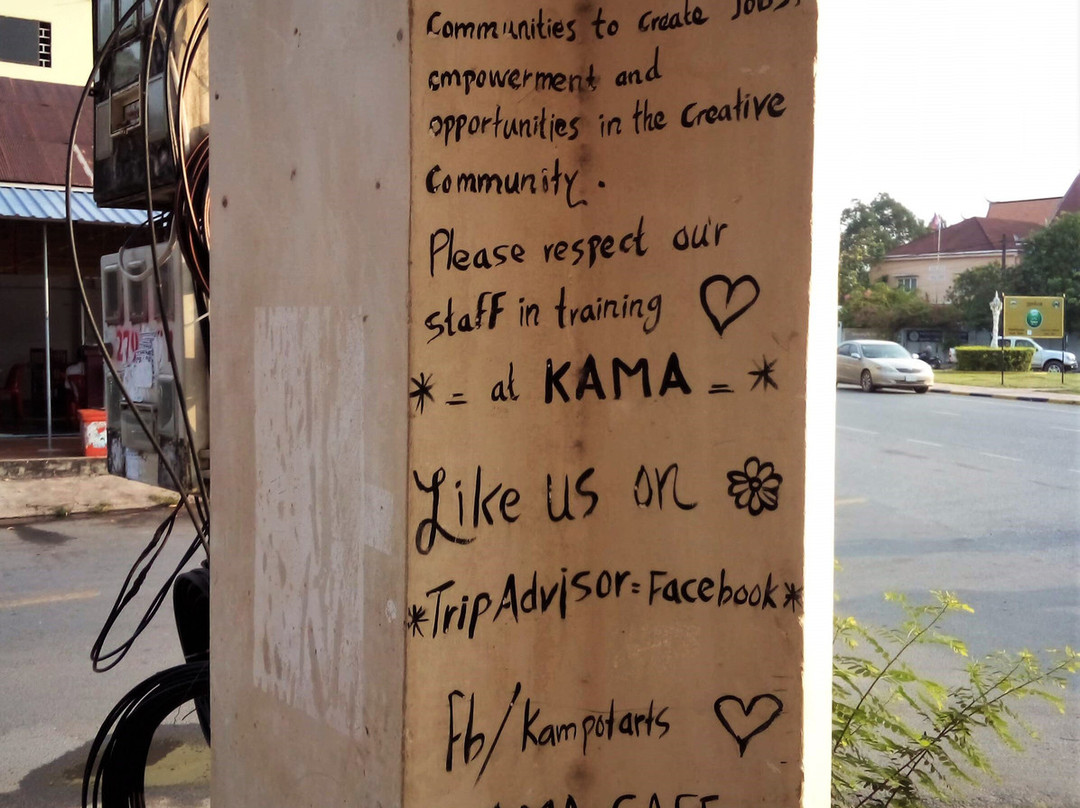 Communities to create Jobs,
empowerment and
opportunities in the Creative
Community.
Please respect our
staff in training ♡
* = at KAMA = *
Like us on
*TripAdvisor=Facebook*
fb/Kampotarts ♡
CAFE
270